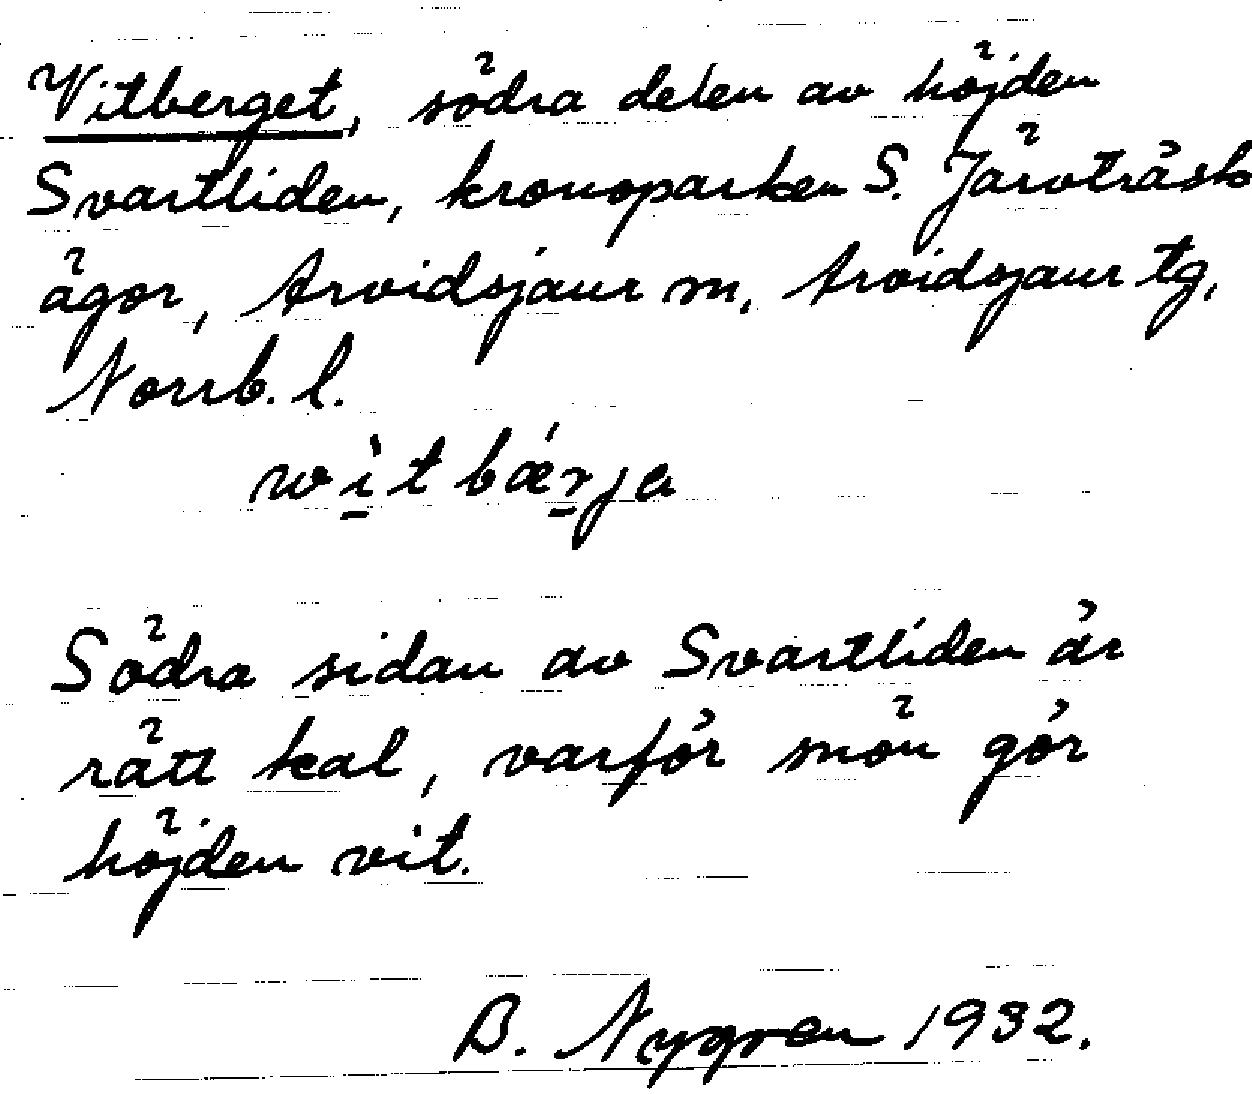 Vitberget, södra delen av höjden
Svartliden, kronoparken S. Järvträsk
ägor, Arvidsjaur sn, Arvidsjaur tg,
Norrb. l.
wìtbǽrja
Södra sidan av Svartliden är
rätt kal, varför snön gör
höjden vit.
B. Nygren 1932.